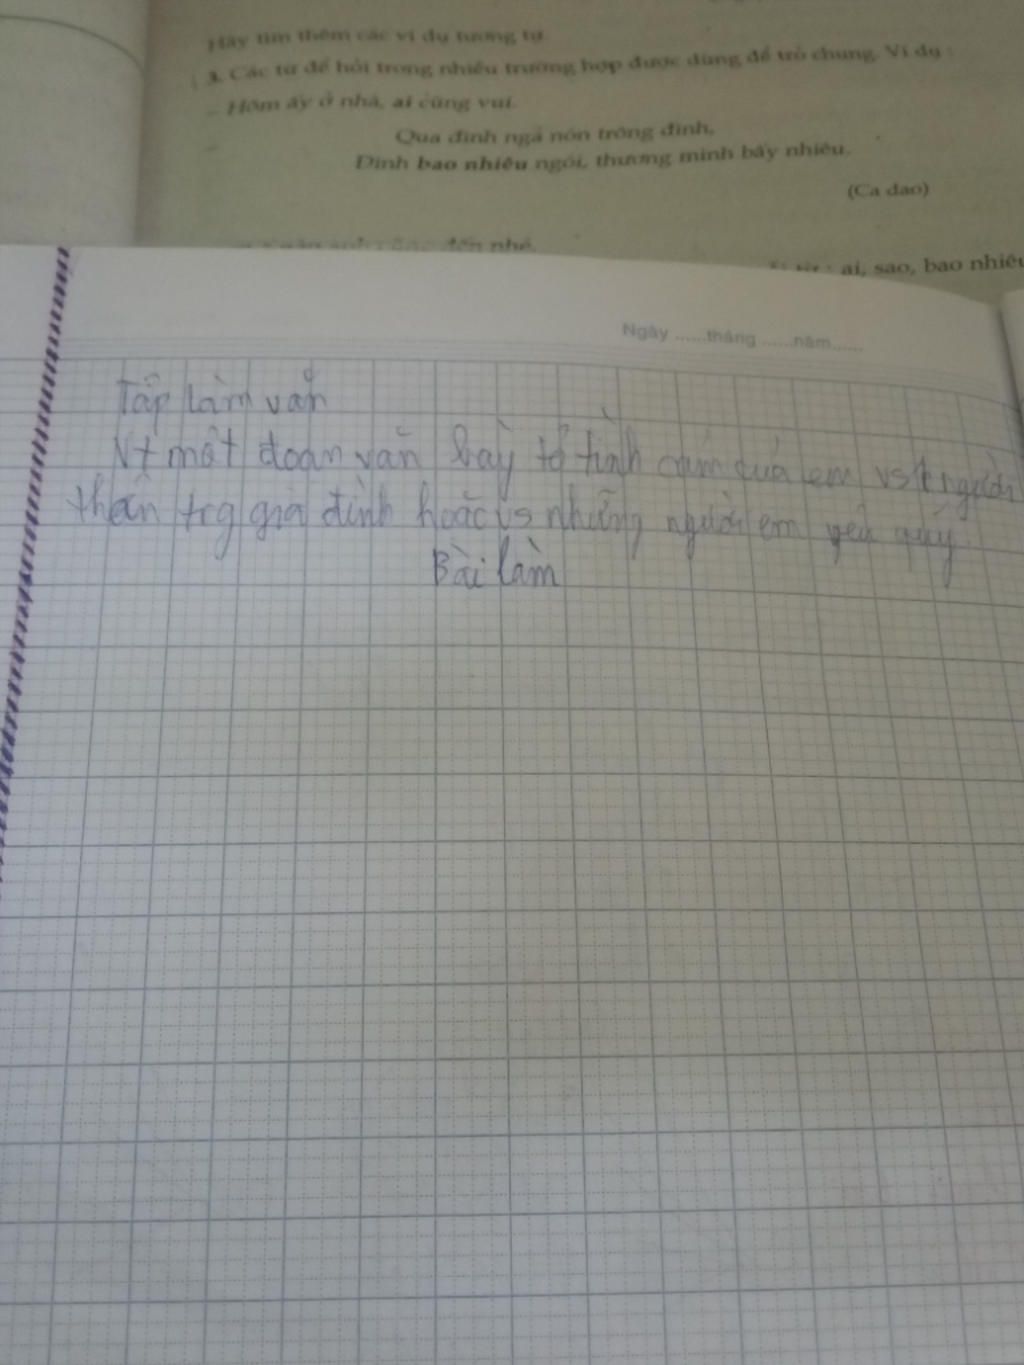 Hãy tìm thêm các ví dụ tương tự.
3. Các từ để hỏi trong nhiều trường hợp được dùng để trỏ chung. Ví dụ :
– Hôm ấy ở nhà, ai cũng vui.
Qua đình ngả nón trông đình,
Đình bao nhiêu ngói, thương mình bấy nhiêu.
(Ca dao)
đến nhé.
ai, sao, bao nhiêu
Ngày ......tháng ......năm......
Tập làm văn
Vt một đoạn văn bày tỏ tình cảm của em vs người
thân trg gia đình hoặc vs những người em yêu quý
Bài làm